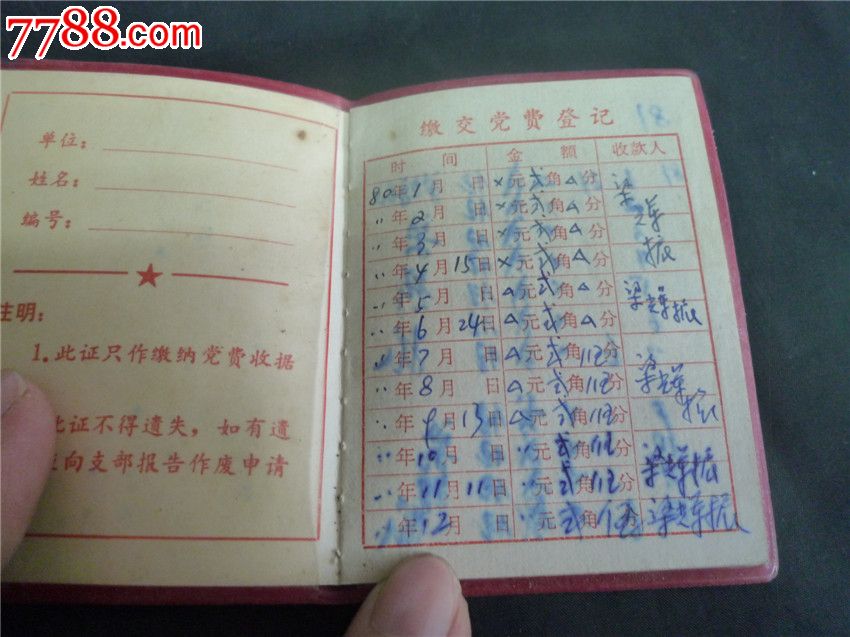 7788.com
单位：
姓名：
编号：
注明：
1.此证只作缴纳党费收据
此证不得遗失，如有遗
向支部报告作废申请
缴交党费登记
时间 金额 收款人
80年1月 日 ×元弍角△分 梁
〃年2月 日 ×元弍角△分
〃年3月 日 ×元弍角△分 振
〃年4月15日 ×元弍角△分
〃年5月 日 △元弍角△分 梁 振
〃年6月24日 △元弍角△分
〃年7月 日 △元弍角伍分 梁
〃年8月 日 △元弍角伍分 振
〃年9月13日 △元弍角伍分
〃年10月 日 〃元弍角伍分 梁 振
〃年11月11日 〃元弍角伍分
〃年12月 日 〃元弍角伍分 梁 振